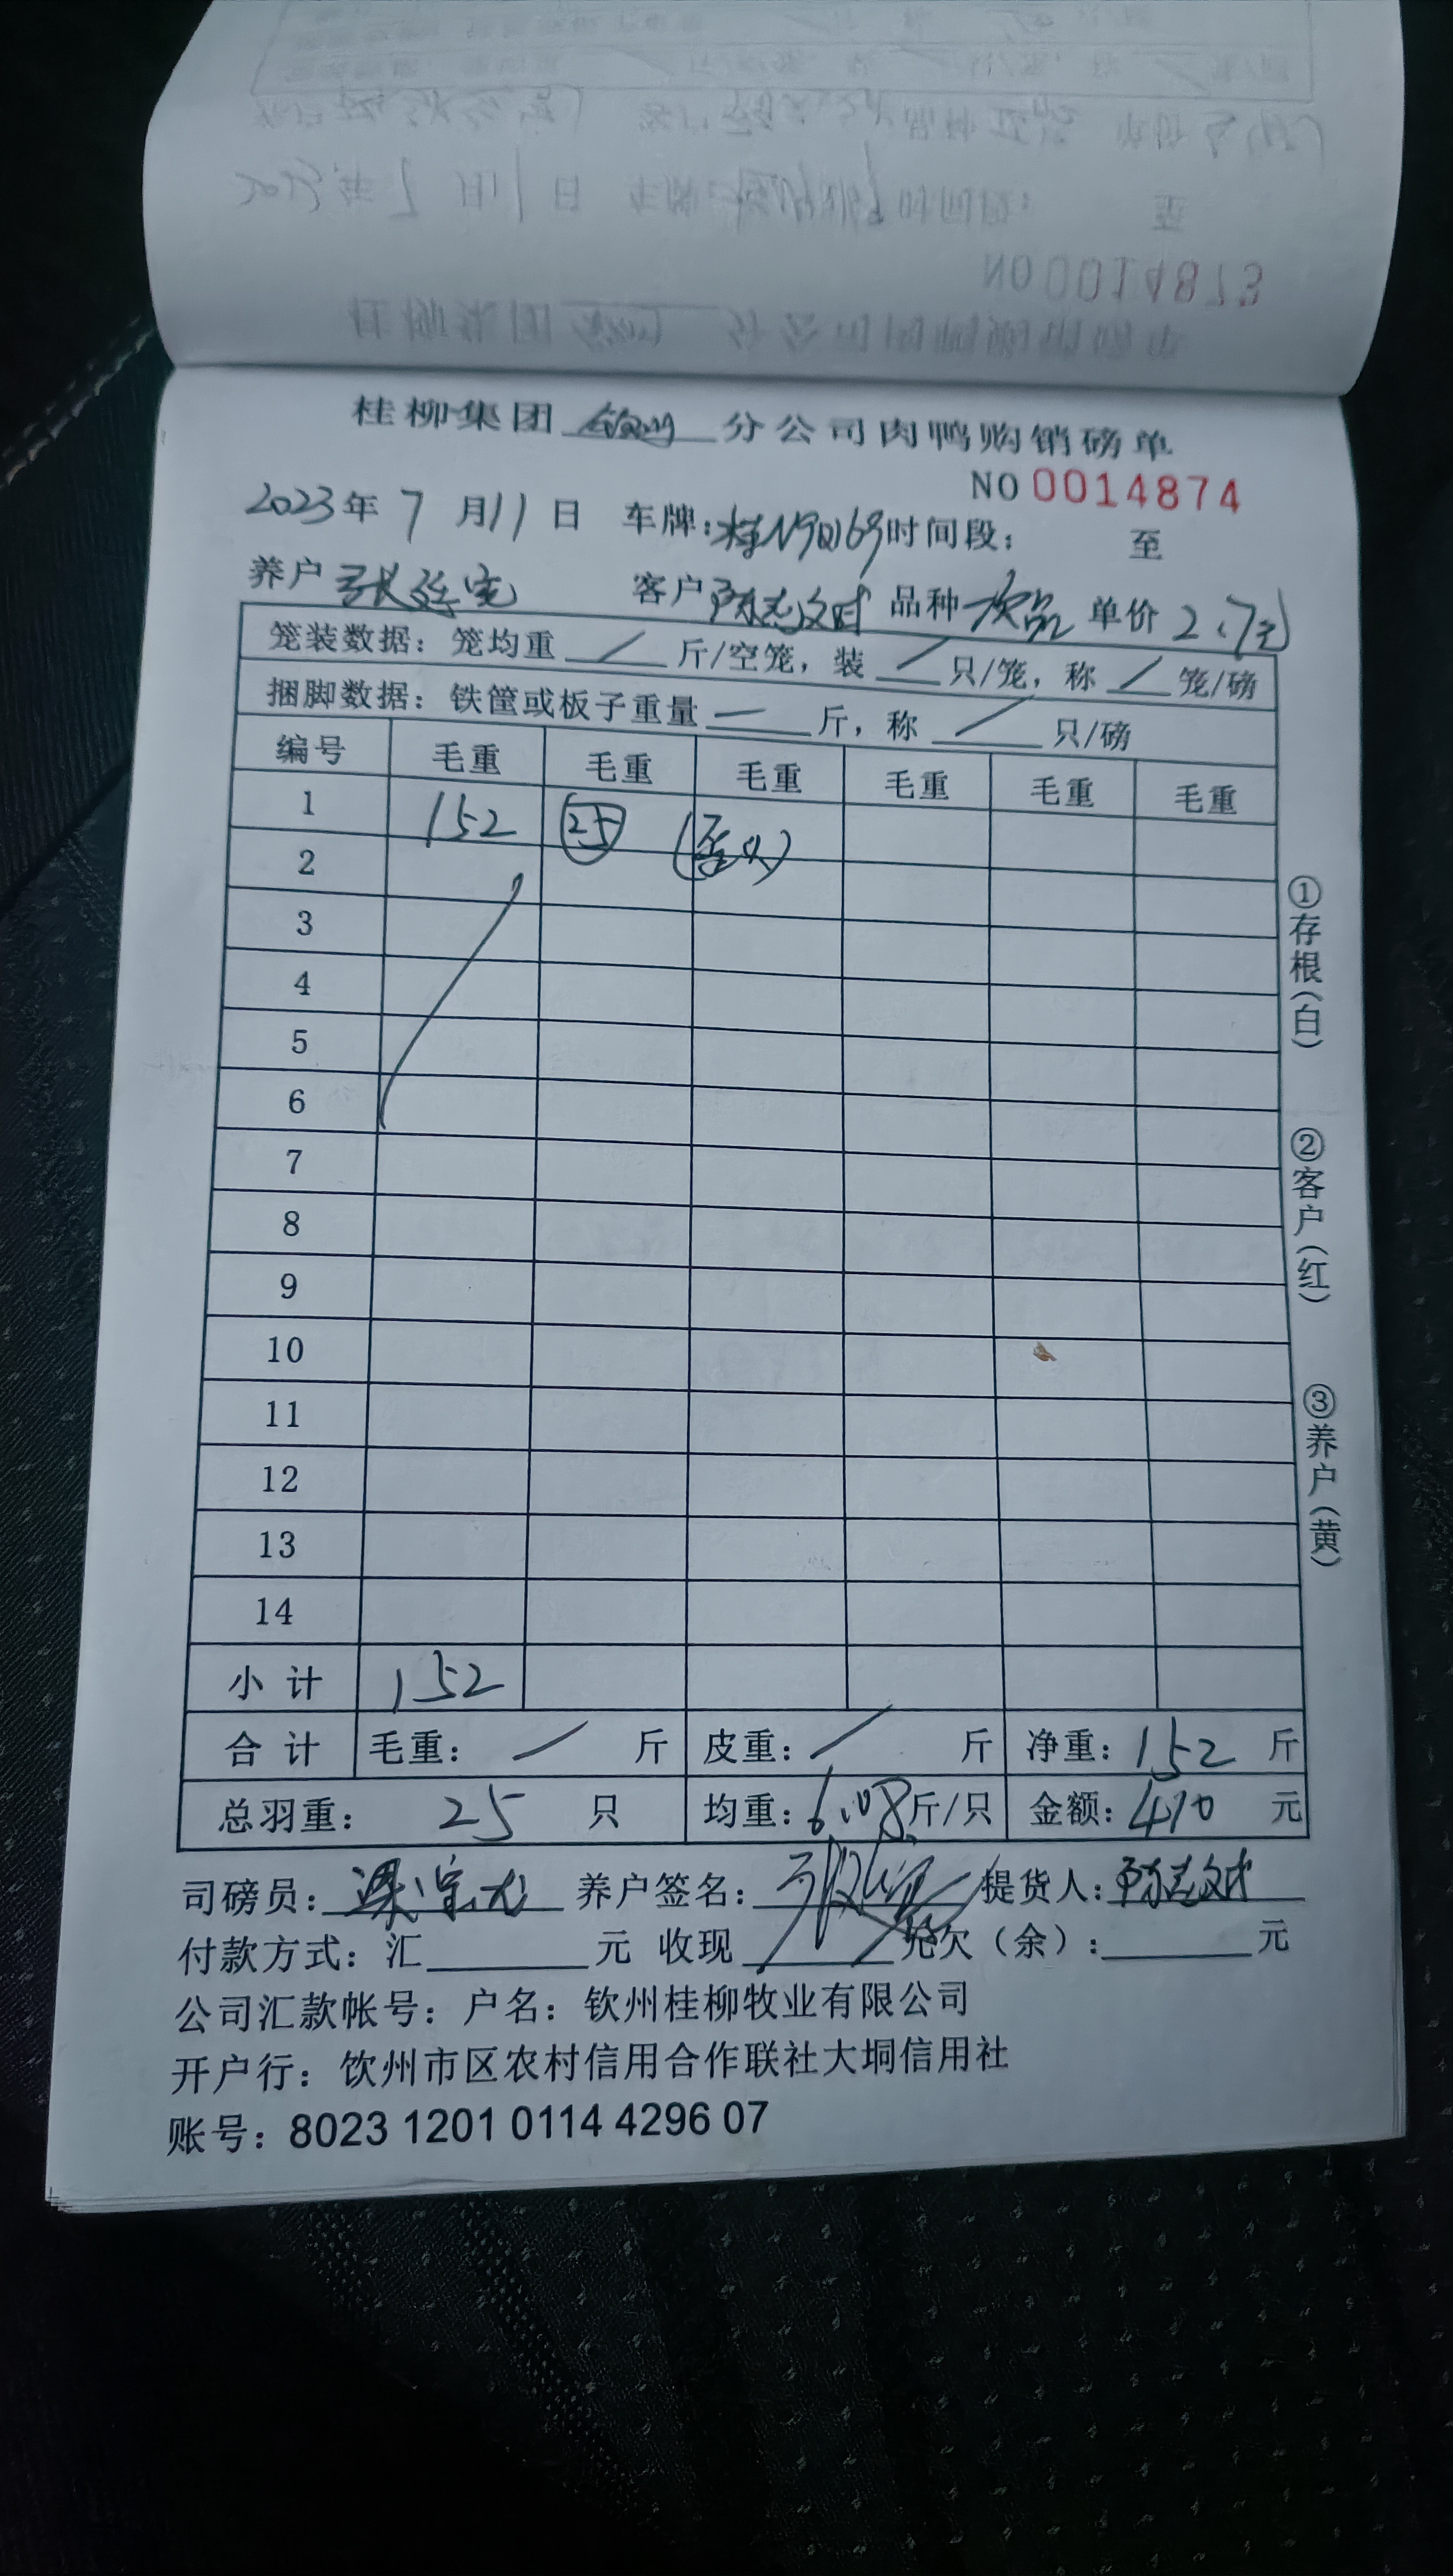 桂柳集团 钦州 分公司肉鸭购销磅单
NO 0014874
2023年 7 月 11 日 车牌: 桂N9Q169 时间段: 至
养户 张廷宪 客户 陈志文时 品种 次品 单价 2.7元
笼装数据: 笼均重 / 斤/空笼, 装 / 只/笼, 称 / 笼/磅
捆脚数据: 铁筐或板子重量 — 斤, 称 / 只/磅
编号 毛重 毛重 毛重 毛重 毛重 毛重
1 152 25
2
3
4
5
6
7
8
9
10
11
12
13
14
小计 152
合计 毛重: / 斤 皮重: / 斤 净重: 152 斤
总羽重: 25 只 均重: 6.08 斤/只 金额: 410 元
司磅员: 养户签名: 提货人:
付款方式: 汇 元 收现 元 欠(余): 元
公司汇款帐号: 户名: 钦州桂柳牧业有限公司
开户行: 钦州市区农村信用合作联社大垌信用社
账号: 8023 1201 0114 4296 07
①存根(白)
②客户(红)
③养户(黄)